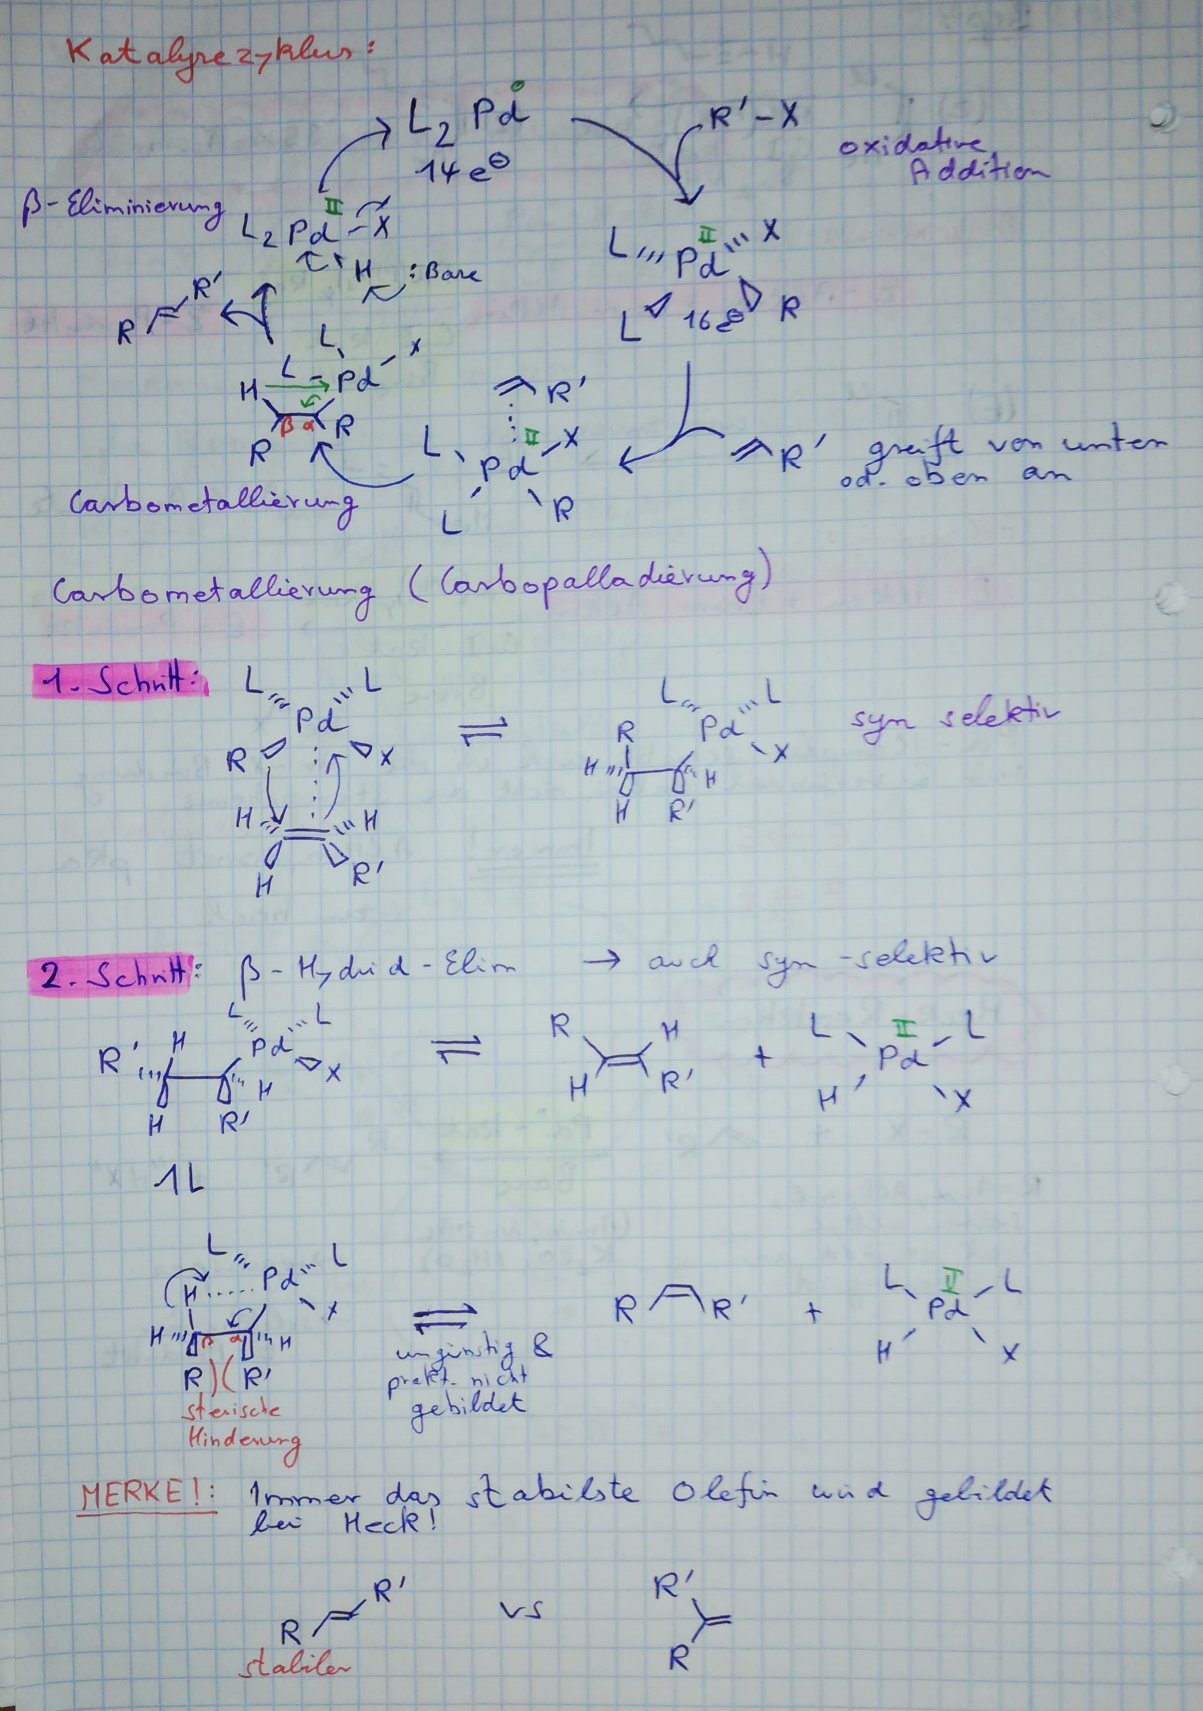 Katalysezyklus:
L2 Pd0
14 e⊖
R'-X
oxidative
Addition
β-Eliminierung
L2 PdII-X
H :Base
R R'
L PdII X
L 16 e⊖ R
L
H L Pd X
β α
R R
R'
L PdII X
L R
R' greift von unten
od. oben an
Carbometallierung
Carbometallierung (Carbopalladierung)
1. Schritt:
L L
Pd
R X
H H
H R'
⇌
L L
R Pd
X
H H
H R'
syn selektiv
2. Schritt: β-Hydrid-Elim → auch syn-selektiv
L L
H Pd
R' X
H
H R'
⇌
R H
H R'
+
L II L
Pd
H X
1L
L L
H Pd
X
H β α H
R )( R'
sterische
Hinderung
⇌
ungünstig &
prakt. nicht
gebildet
R R'
+
L II L
Pd
H X
MERKE!: Immer das stabilste Olefin wird gebildet
bei Heck!
R R'
stabiler
vs
R'
R